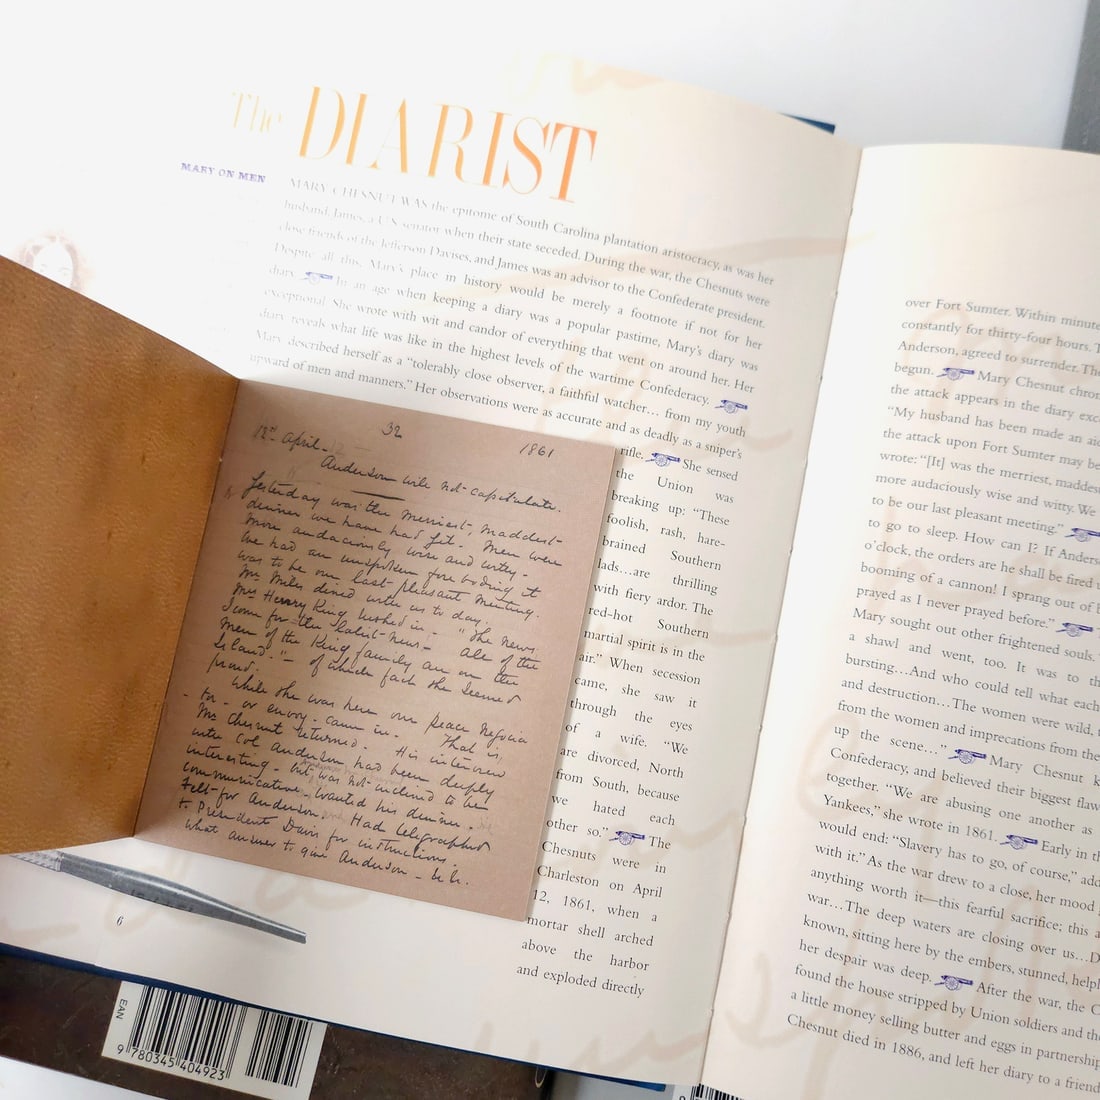 The DIARIST
MARY ON MEN
MARY CHESNUT WAS the epitome of South Carolina plantation aristocracy, as was her
husband, James, a U.S. senator when their state seceded. During the war, the Chesnuts were
close friends of the Jefferson Davises, and James was an advisor to the Confederate president.
Despite all this, Mary's place in history would be merely a footnote if not for her
diary. In an age when keeping a diary was a popular pastime, Mary's diary was
exceptional. She wrote with wit and candor of everything that went on around her. Her
diary reveals what life was like in the highest levels of the wartime Confederacy.
Mary described herself as a “tolerably close observer, a faithful watcher… from my youth
upward of men and manners.” Her observations were as accurate and as deadly as a sniper's
rifle. She sensed
the Union was
breaking up: “These
foolish, rash, hare-
brained Southern
lads…are thrilling
with fiery ardor. The
red-hot Southern
martial spirit is in the
air.” When secession
came, she saw it
through the eyes
of a wife. “We
are divorced, North
from South, because
we hated each
other so.” The
Chesnuts were in
Charleston on April
12, 1861, when a
mortar shell arched
above the harbor
and exploded directly
32
12th April. 1861
Anderson will not capitulate.
Yesterday was the merriest, maddest
dinner we have had yet. Men were
more audaciously wise and witty.
We had an unspoken foreboding it
was to be our last pleasant meeting.
Mr Miles dined with us to day.
Mrs Henry King rushed in - "The news
I come for the latest news - all of the
men of the King family are on the
Island." - of which fact she seemed
proud.
While she was here our peace negocia
tor - or envoy - came in. That is
Mr Chesnut returned - His interview
with Col Anderson had been deeply
interesting - but was not inclined to be
communicative - wanted his dinner.
Felt for Anderson. Had telegraphed
to President Davis for instructions.
what answer to give Anderson - &c.
6
over Fort Sumter. Within minute
constantly for thirty-four hours. T
Anderson, agreed to surrender. The
begun. Mary Chesnut chron
the attack appears in the diary exc
“My husband has been made an aid
the attack upon Fort Sumter may be
wrote: “[It] was the merriest, maddes
more audaciously wise and witty. We
to be our last pleasant meeting.”
to go to sleep. How can I? If Anders
o'clock, the orders are he shall be fired
booming of a cannon! I sprang out of
prayed as I never prayed before.”
Mary sought out other frightened souls.
a shawl and went, too. It was to th
bursting…And who could tell what each
and destruction…The women were wild, t
from the women and imprecations from the
up the scene…” Mary Chesnut k
Confederacy, and believed their biggest flaw
together. “We are abusing one another as
Yankees,” she wrote in 1861. Early in th
would end: “Slavery has to go, of course,” add
with it.” As the war drew to a close, her mood
anything worth it—this fearful sacrifice; this a
war…The deep waters are closing over us…D
known, sitting here by the embers, stunned, helpl
her despair was deep. After the war, the C
found the house stripped by Union soldiers and the
a little money selling butter and eggs in partnership
Chesnut died in 1886, and left her diary to a friend
EAN
9 780345 404923
9